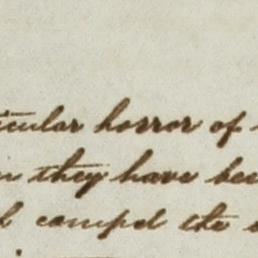 icular horror of
they have bee
compel the